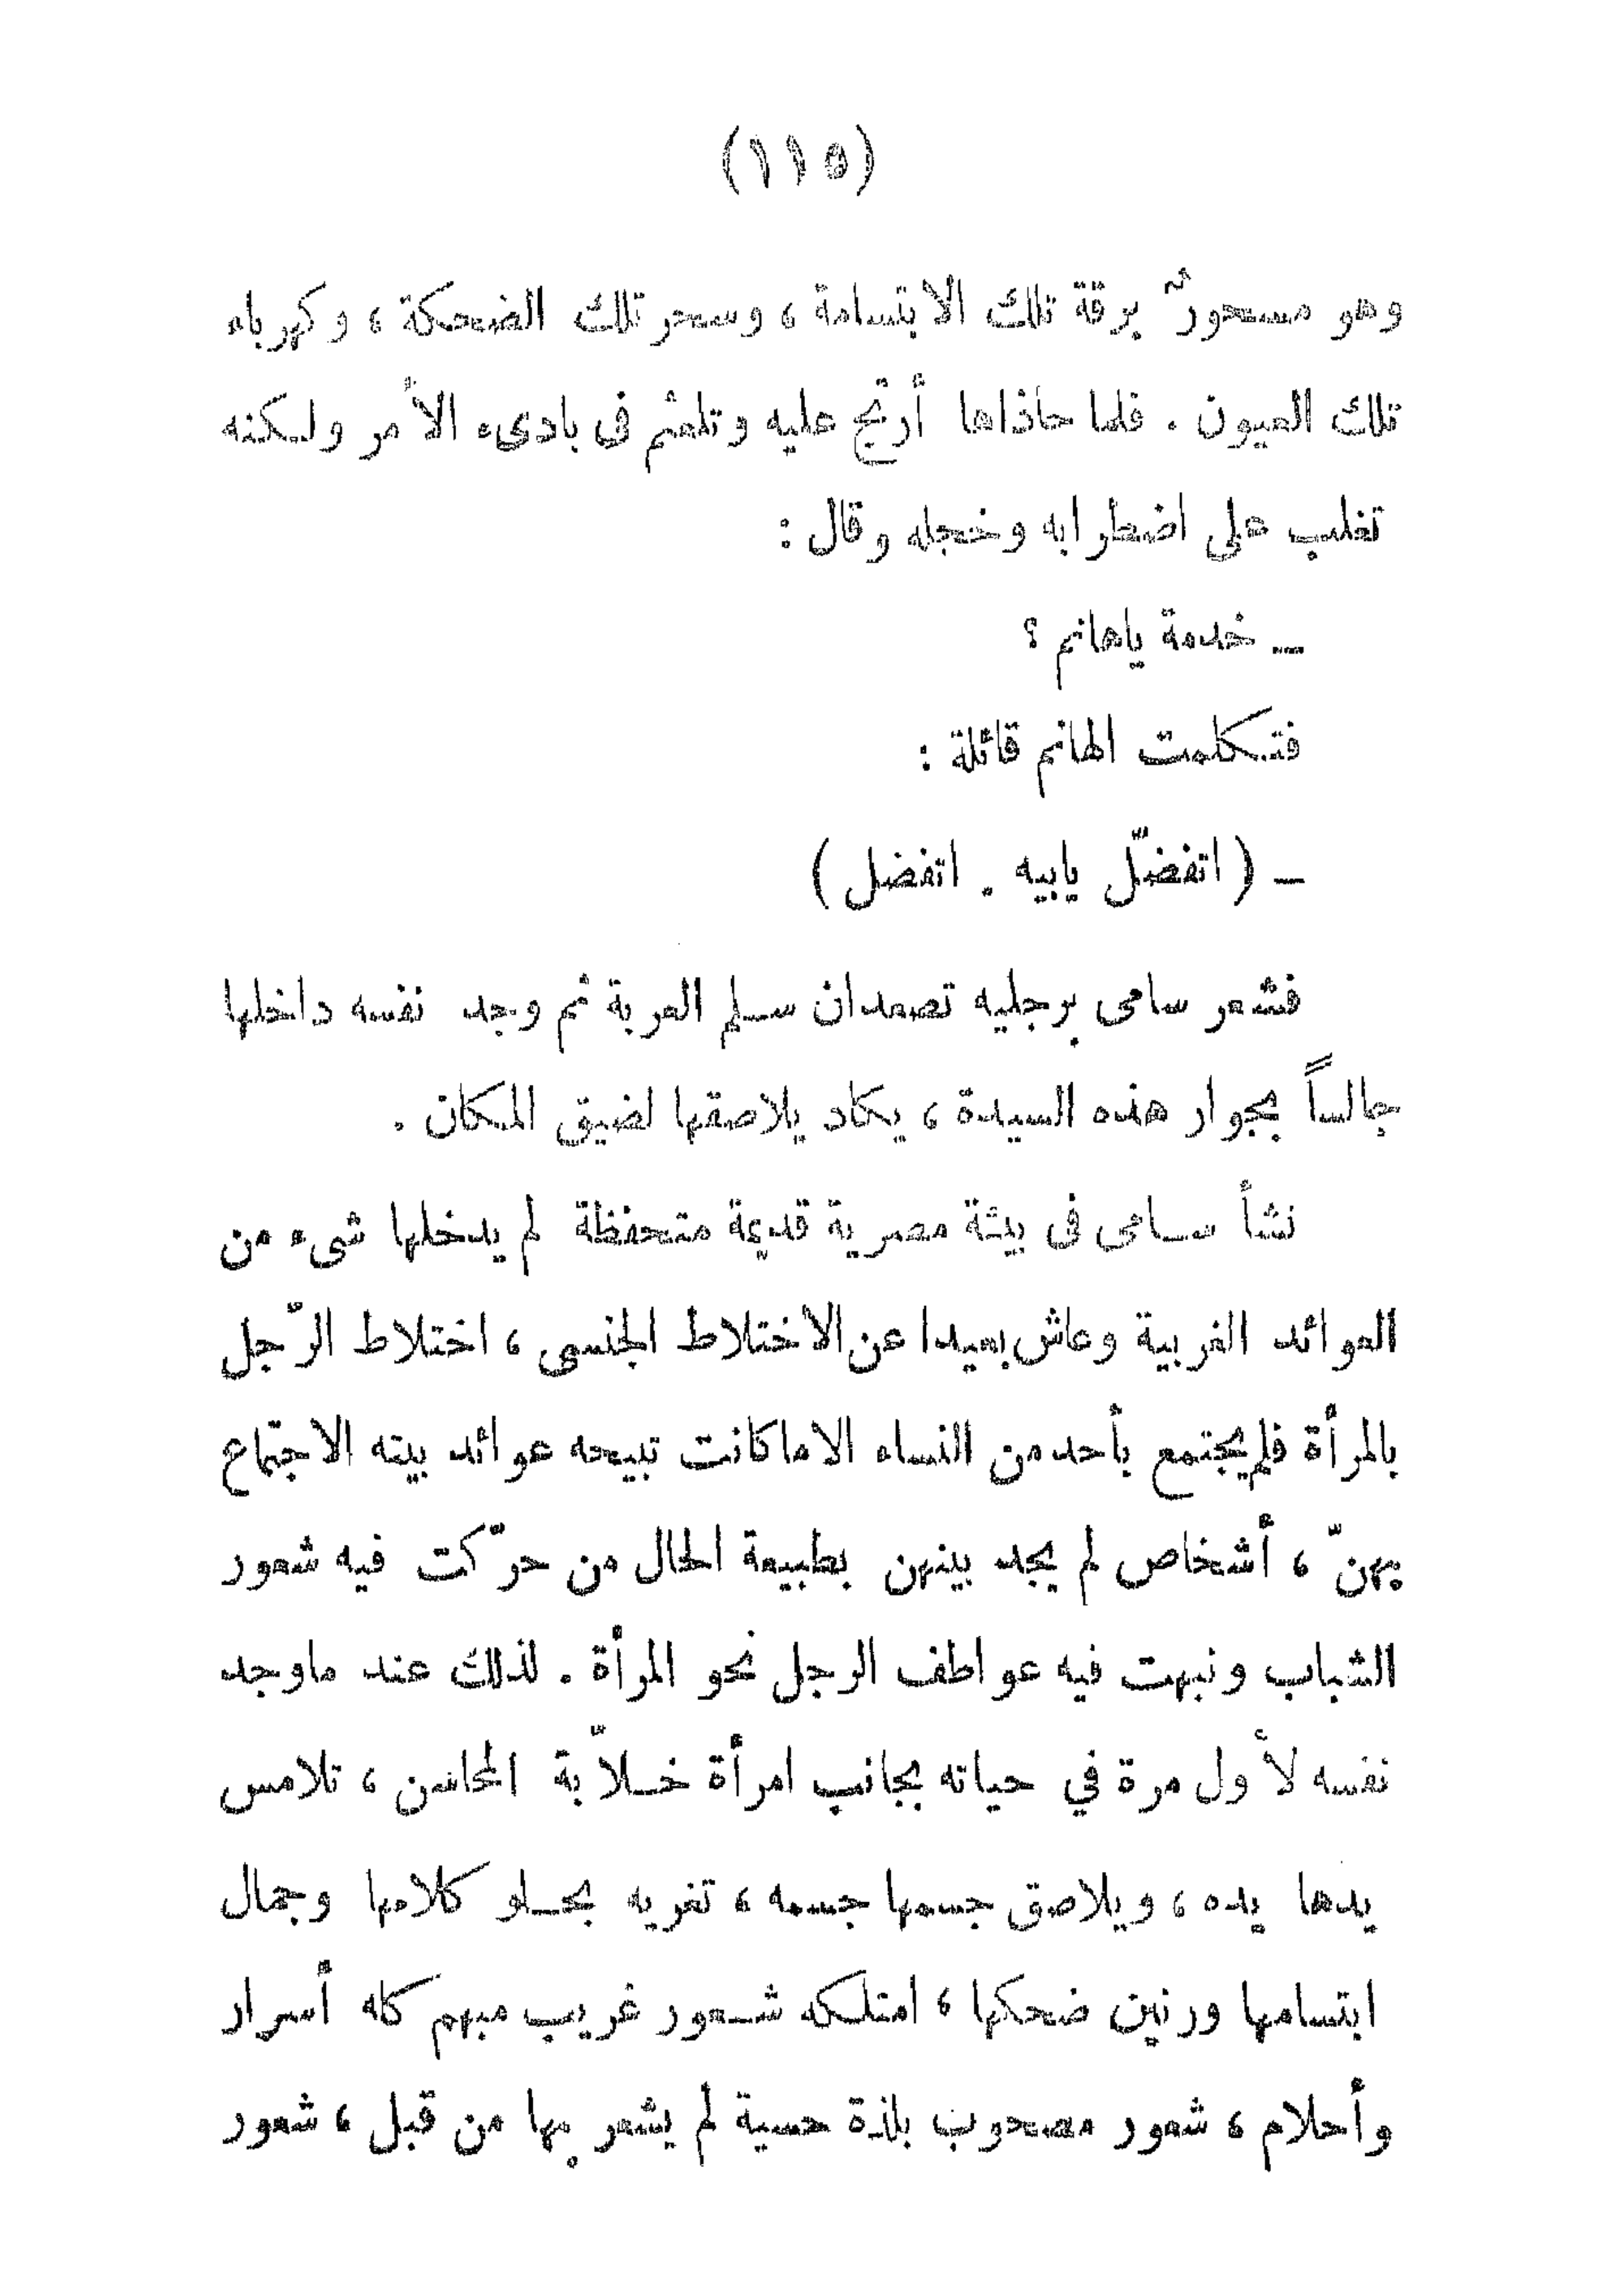 (١١٥)
وهو مسحورٌ برقة تلك الابتسامة ، وسحر تلك الضحكة ، وكهرباء
تلك العيون . فلما حاذاها أرتج عليه وتلعثم فى بادىء الأمر ولكنه
تغلب على اضطرابه وخجله وقال :
ــ خدمة ياهانم ؟
فتكلمت الهانم قائلة :
ــ ( اتفضّل يابيه . اتفضل )
فشعر سامى برجليه تصعدان سلم العربة ثم وجد نفسه داخلها
جالساً بجوار هذه السيدة ، يكاد يلاصقها لضيق المكان .
نشأ سامى فى بيئة مصرية قديمة متحفظة لم يدخلها شىء من
العوائد الغربية وعاش بعيدا عن الاختلاط الجنسى ، اختلاط الرّجل
بالمرأة فلم يجتمع بأحد من النساء الا ما كانت تبيحه عوائد بيته الاجتماع
بهنّ ، أشخاص لم يجد بينهن بطبيعة الحال من حرّكت فيه شعور
الشباب ونبهت فيه عواطف الرجل نحو المرأة . لذلك عند ماوجد
نفسه لأول مرة في حياته بجانب امرأة خلاّبة المحاسن ، تلامس
يدها يده ، ويلاصق جسمها جسمه ، تغريه بحلو كلامها وجمال
ابتسامها ورنين ضحكها ، امتلكه شعور غريب مبهم كله أسرار
وأحلام ، شعور مصحوب بلذة حسية لم يشعر بها من قبل ، شعور